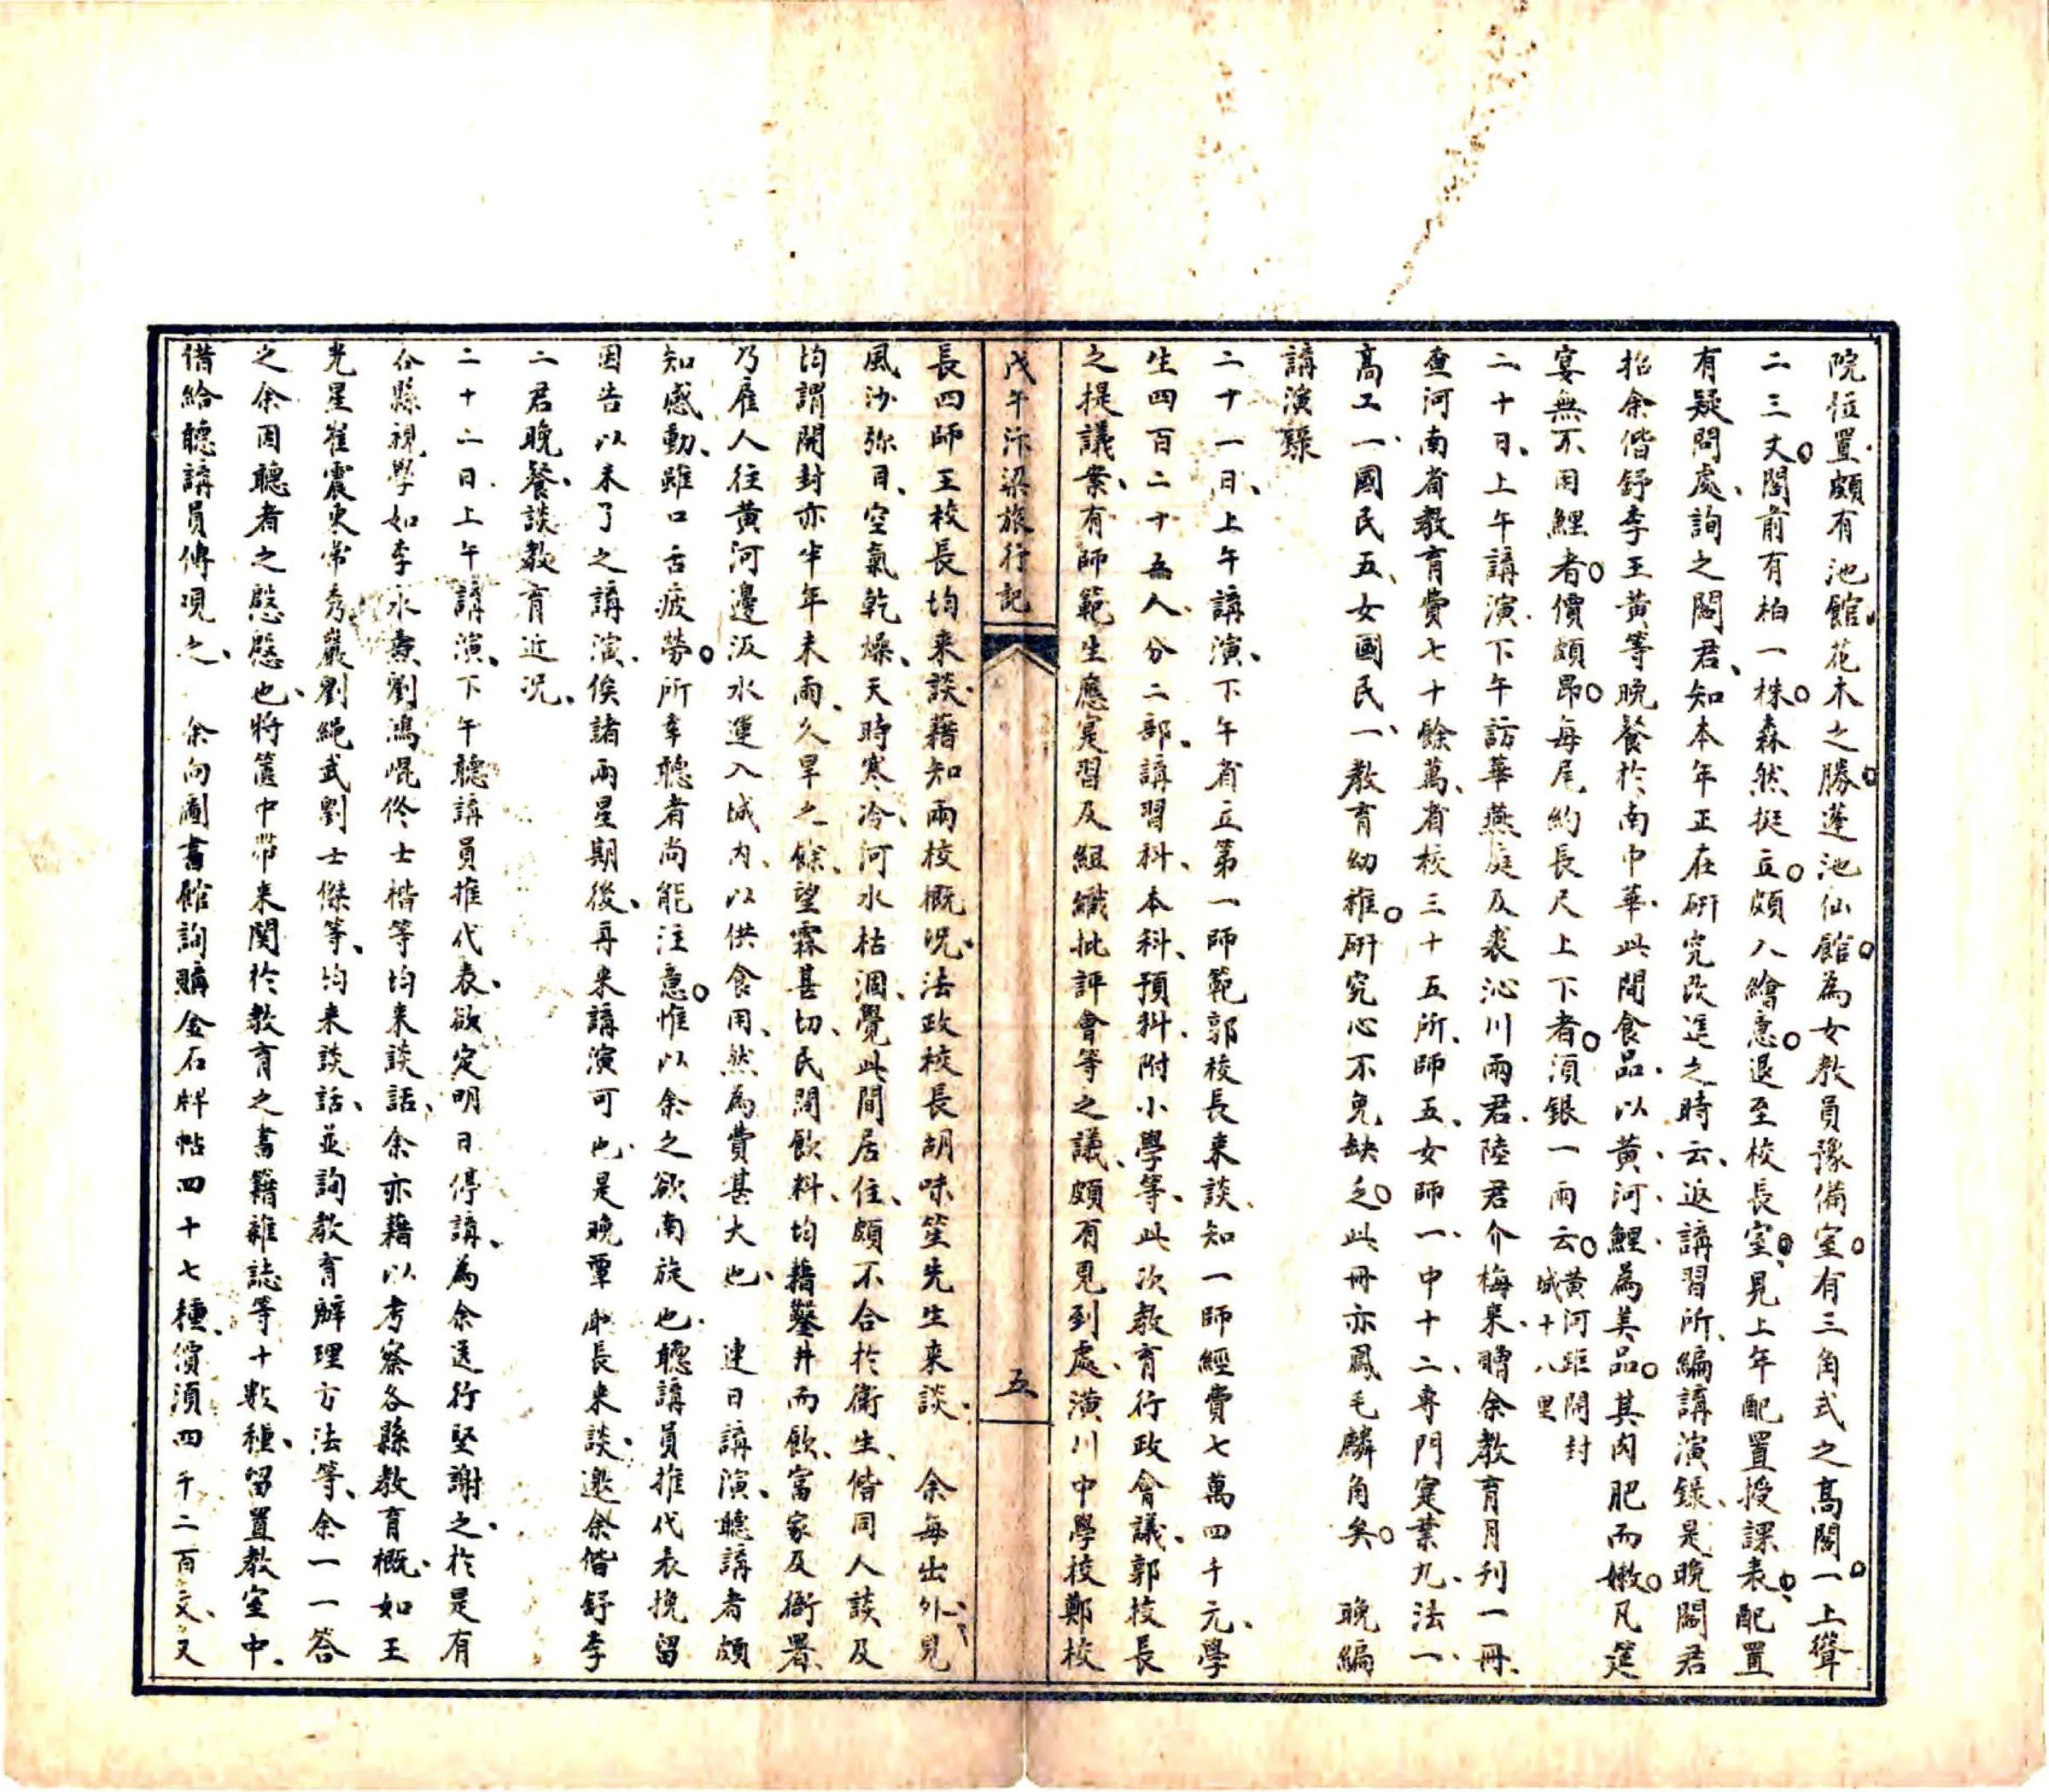 院位置、頗有池館花木之勝。蓬池仙館。為女教員豫備室。有三角式之高閣。一上聳
二三丈。閣前有柏一株。森然挺立。頗入繪意。退至校長室、見上年配置授課表、配置
有疑問處、詢之閻君、知本年正在研究改進之時云、返講習所、編講演錄、是晚閻君
招余偕舒李王黃等晚餐於南中華、此間食品、以黃河鯉為美品。其肉肥而嫩。凡筵
宴無不用鯉者。價頗昂。每尾約長尺上下者。須銀一兩云。黃河距開封城十八里
二十日、上午講演、下午訪華燕庭及裘沁川兩君、陸君介梅來、贈余教育月刊一冊、
查河南省教育費七十餘萬、省校三十五所、師五、女師一、中十二、專門實業九、法一、
高工一、國民五、女國民一、教育幼稚。研究心不免缺乏。此冊亦鳳毛麟角矣。 晚編
講演錄
二十一日、上午講演、下午省立第一師範郭校長來談、知一師經費七萬四千元、學
生四百二十五人、分二部、講習科、本科、預科、附小學等、此次教育行政會議、郭校長
之提議案、有師範生應實習及組織批評會等之議、頗有見到處、潢川中學校鄭校
戊午汴梁旅行記 五
長四師王校長均來談、藉知兩校概況、法政校長胡味笙先生來談、 余每出外、見
風沙弥目、空氣乾燥、天時寒冷、河水枯涸、覺此間居住、頗不合於衛生、偕同人談及
均謂開封亦半年未雨、久旱之餘、望霖甚切、民間飲料、均藉鑿井而飲、富家及衙署、
乃雇人往黃河邊汲水運入城內、以供食用、然為費甚大也、 連日講演、聽講者頗
知感動、雖口舌疲勞。所幸聽者尚能注意。惟以余之欲南旋也、聽講員推代表挽留
因告以未了之講演、俟諸兩星期後、再來講演可也、是晚覃廳長來談、邀余偕舒李
二君晚餐、談教育近況、
二十二日、上午講演、下午聽講員推代表、欲定明日停講、為余送行、堅謝之、於是有
各縣視學如李永熏劉鴻焜佟士楷等均來談話、余亦藉以考察各縣教育概、如王
光星崔震東常秀巖劉繩武劉士傑等、均來談話、並詢教育辦理方法等、余一一答
之、余因聽者之慇慇也、將篋中帶來関於教育之書籍雜誌等十數種、留置教室中、
借給聽講員傳閱之、 余向圖書館詢購金石牌帖四十七種、價須四千二百文、又